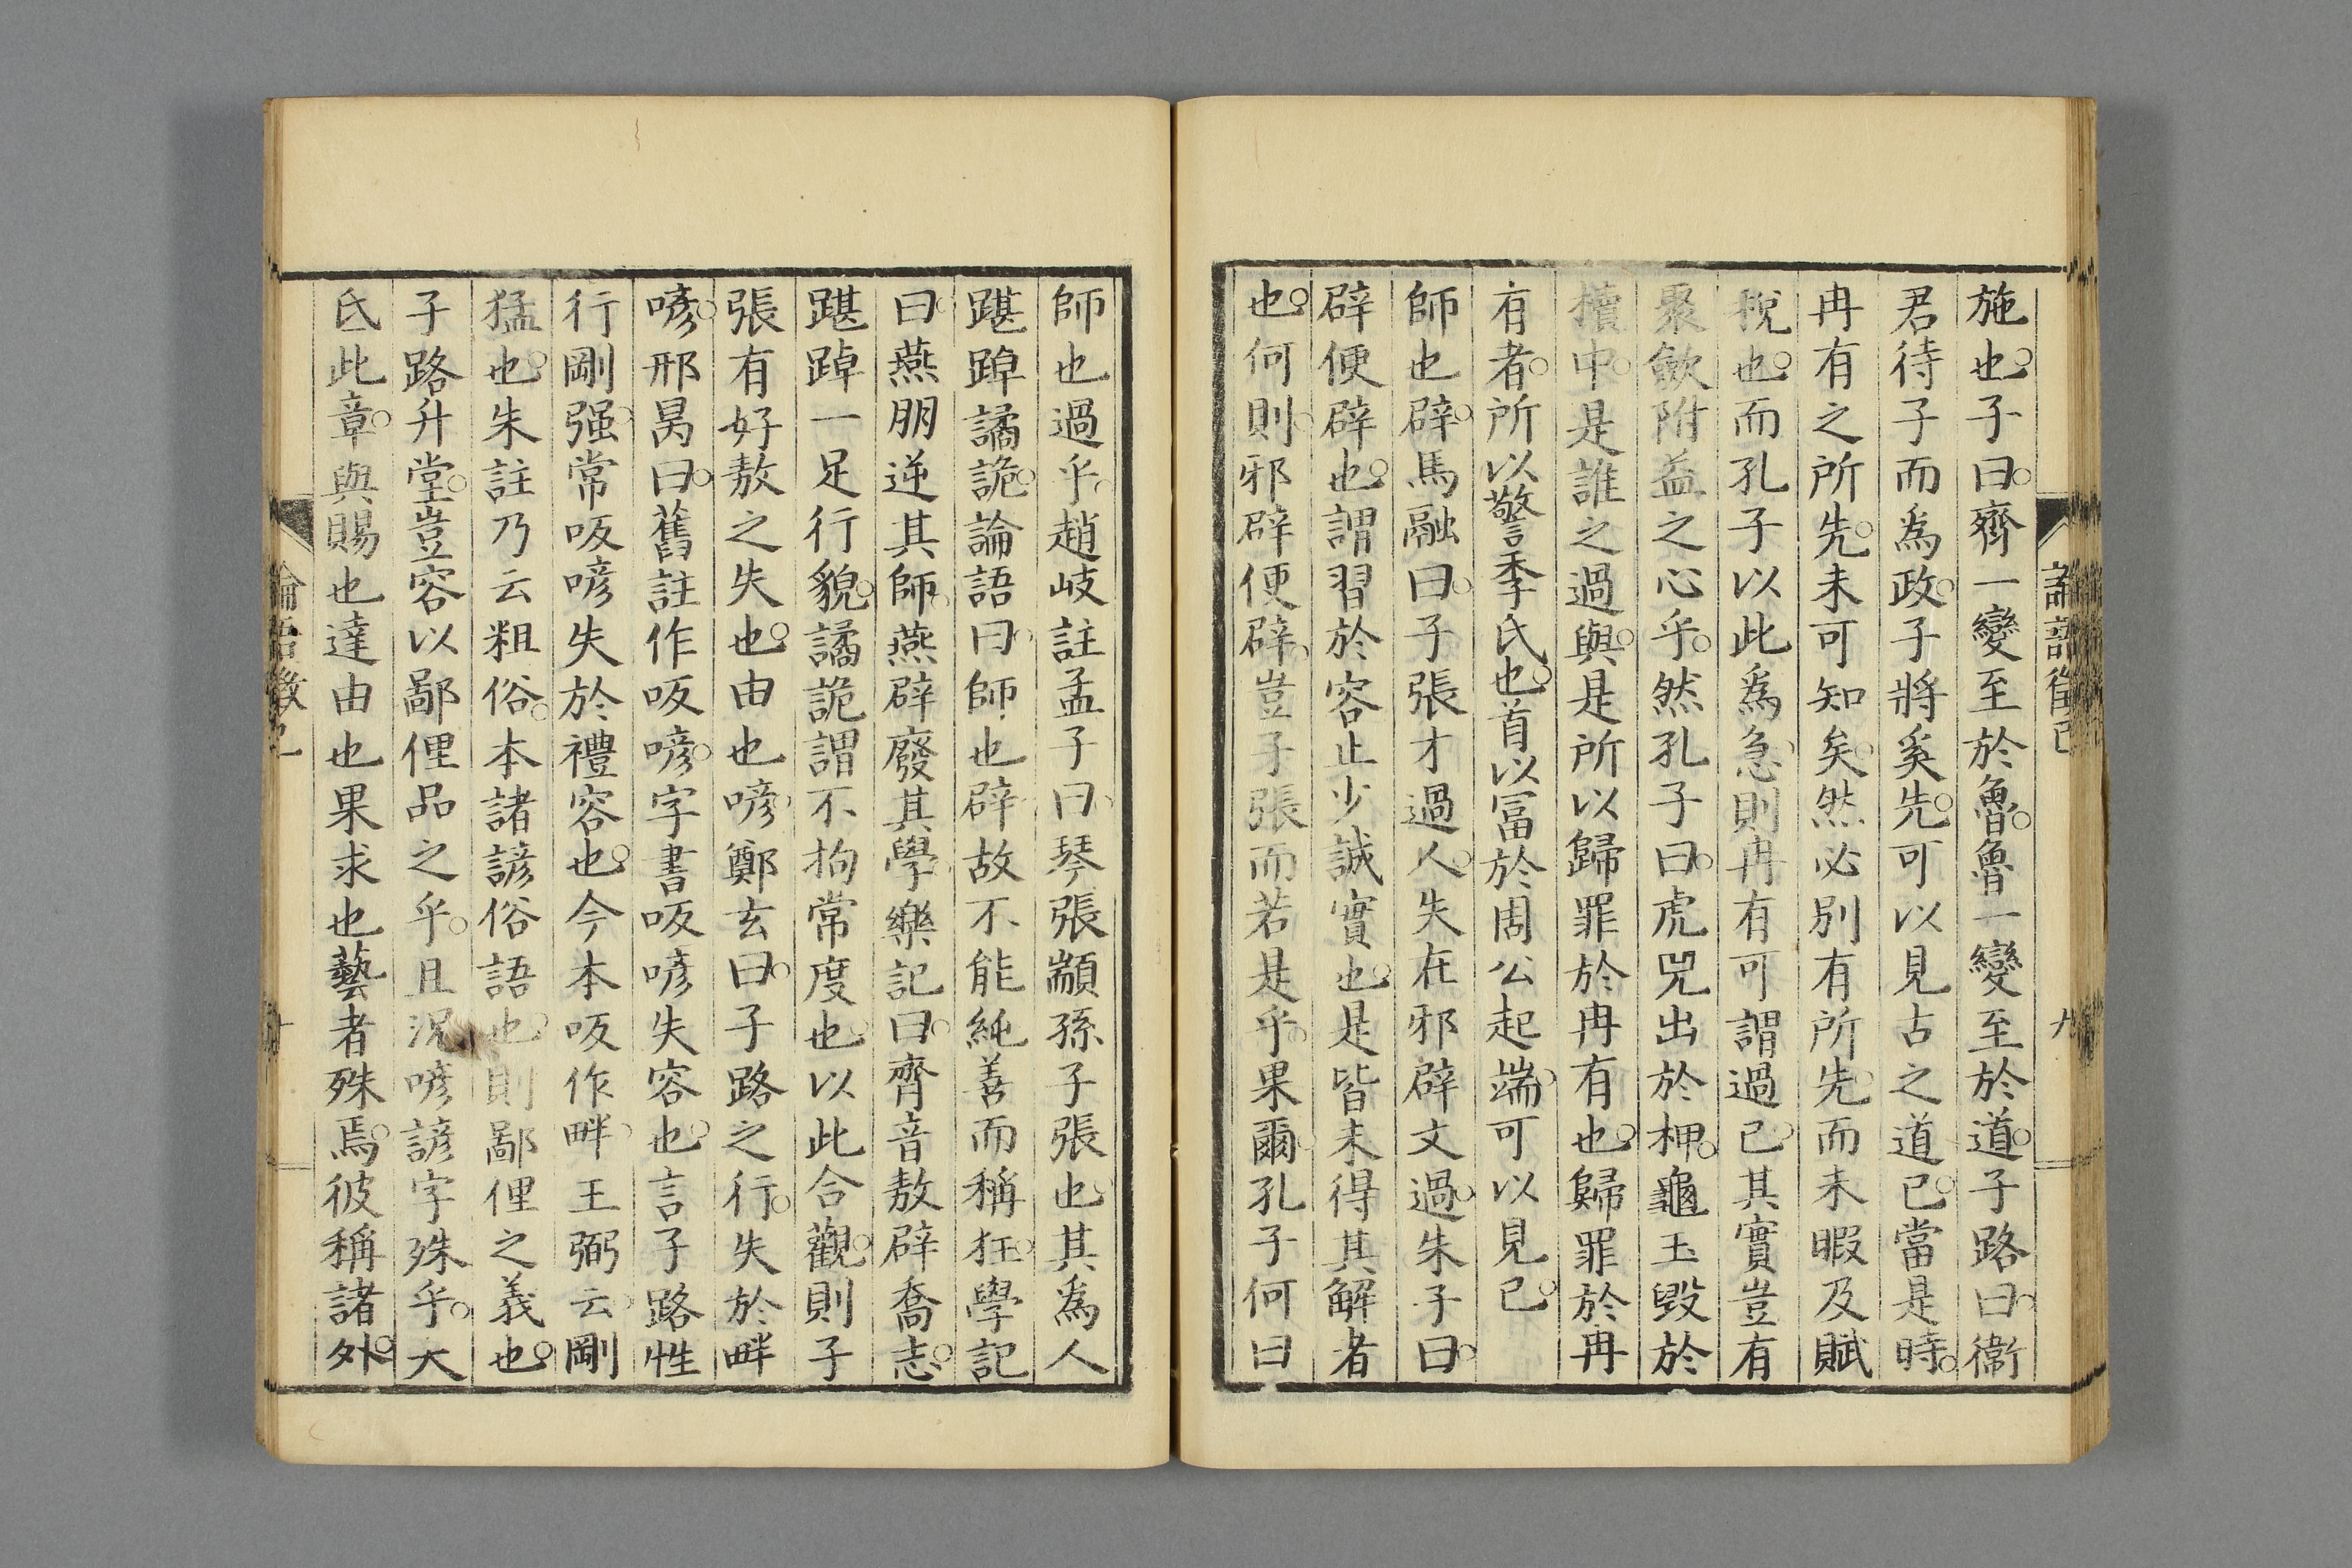 論語徵己
九
施也子曰齊一變至於魯魯一變至於道子路曰衞
君待子而爲政子將奚先可以見古之道已當是時
冉有之所先未可知矣然必別有所先而未暇及賦
稅也而孔子以此爲急則冉有可謂過已其實豈有
聚斂附益之心乎然孔子曰虎兕出於柙龜玉毀於
櫝中是誰之過與是所以歸罪於冉有也歸罪於冉
有者所以警季氏也首以冨於周公起端可以見已
師也辟馬融曰子張才過人失在邪辟文過朱子曰
辟便辟也謂習於容止少誠實也是皆未得其解者
也何則邪辟便辟豈子張而若是乎果爾孔子何曰
師也過乎趙岐註孟子曰琴張顓孫子張也其爲人
踸踔譎詭論語曰師也辟故不能純善而稱狂學記
曰燕朋逆其師燕辟廢其學樂記曰齊音敖辟喬志
踸踔一足行貌譎詭謂不拘常度也以此合觀則子
張有好敖之失也由也喭鄭玄曰子路之行失於畔
喭邢昺曰舊註作呡喭字書呡喭失容也言子路性
行剛强常呡喭失於禮容也今本呡作畔王弼云剛
猛也朱註乃云粗俗本諸諺俗語也則鄙俚之義也
子路升堂豈容以鄙俚品之乎且況喭諺字殊乎大
氐此章與賜也達由也果求也藝者殊焉彼稱諸外